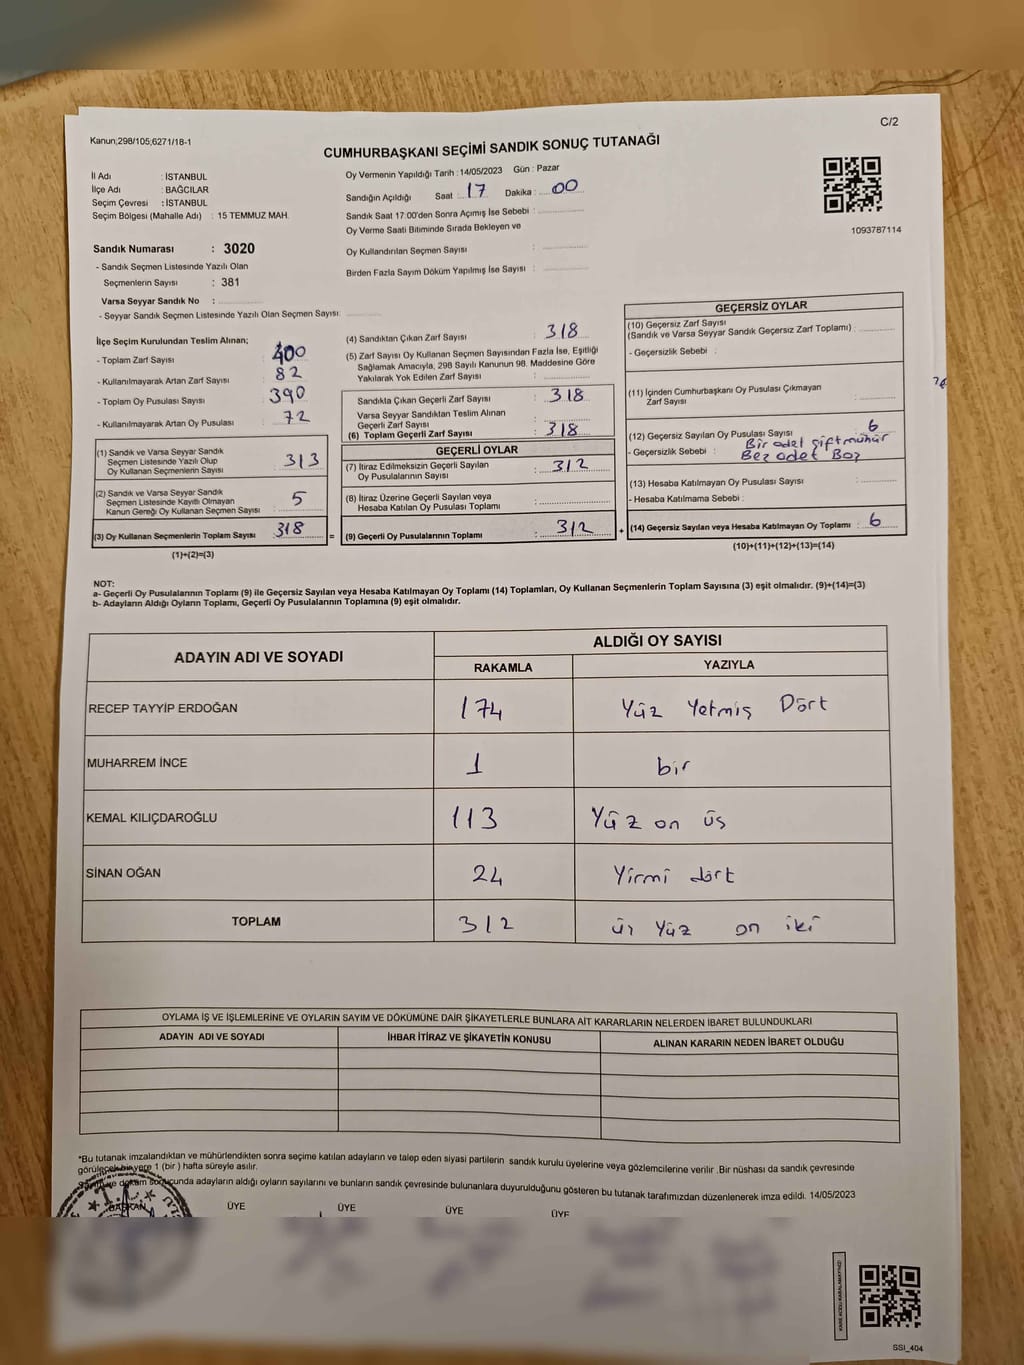 C/2
Kanun;298/105;6271/18-1
CUMHURBAŞKANI SEÇİMİ SANDIK SONUÇ TUTANAĞI
İl Adı : İSTANBUL
İlçe Adı : BAĞCILAR
Seçim Çevresi : İSTANBUL
Seçim Bölgesi (Mahalle Adı) : 15 TEMMUZ MAH.
Sandık Numarası : 3020
- Sandık Seçmen Listesinde Yazılı Olan
Seçmenlerin Sayısı : 381
Varsa Seyyar Sandık No :
- Seyyar Sandık Seçmen Listesinde Yazılı Olan Seçmen Sayısı:
Oy Vermenin Yapıldığı Tarih : 14/05/2023 Gün : Pazar
Sandığın Açıldığı Saat : 17 Dakika : 00
Sandık Saat 17:00'den Sonra Açımış İse Sebebi :
Oy Verme Saati Bitiminde Sırada Bekleyen ve
Oy Kullandırılan Seçmen Sayısı :
Birden Fazla Sayım Döküm Yapılmış İse Sayısı :
1093787114
İlçe Seçim Kurulundan Teslim Alınan;
- Toplam Zarf Sayısı : 400
- Kullanılmayarak Artan Zarf Sayısı : 82
- Toplam Oy Pusulası Sayısı : 390
- Kullanılmayarak Artan Oy Pusulası : 72
(1) Sandık ve Varsa Seyyar Sandık
Seçmen Listesinde Yazılı Olup
Oy Kullanan Seçmenlerin Sayısı : 313
(2) Sandık ve Varsa Seyyar Sandık
Seçmen Listesinde Kayıtlı Olmayan
Kanun Gereği Oy Kullanan Seçmen Sayısı : 5
(3) Oy Kullanan Seçmenlerin Toplam Sayısı : 318
(1)+(2)=(3)
(4) Sandıktan Çıkan Zarf Sayısı : 318
(5) Zarf Sayısı Oy Kullanan Seçmen Sayısından Fazla İse, Eşitliği
Sağlamak Amacıyla, 298 Sayılı Kanunun 98. Maddesine Göre
Yakılarak Yok Edilen Zarf Sayısı :
Sandıkta Çıkan Geçerli Zarf Sayısı : 318
Varsa Seyyar Sandıktan Teslim Alınan
Geçerli Zarf Sayısı :
(6) Toplam Geçerli Zarf Sayısı : 318
GEÇERLİ OYLAR
(7) İtiraz Edilmeksizin Geçerli Sayılan
Oy Pusulalarının Sayısı : 312
(8) İtiraz Üzerine Geçerli Sayılan veya
Hesaba Katılan Oy Pusulası Toplamı :
= (9) Geçerli Oy Pusulalarının Toplamı : 312 +
GEÇERSİZ OYLAR
(10) Geçersiz Zarf Sayısı
(Sandık ve Varsa Seyyar Sandık Geçersiz Zarf Toplamı) :
- Geçersizlik Sebebi :
(11) İçinden Cumhurbaşkanı Oy Pusulası Çıkmayan
Zarf Sayısı :
(12) Geçersiz Sayılan Oy Pusulası Sayısı : 6
- Geçersizlik Sebebi : Bir adet çift mühür
Beş adet Boş
(13) Hesaba Katılmayan Oy Pusulası Sayısı :
- Hesaba Katılmama Sebebi :
(14) Geçersiz Sayılan veya Hesaba Katılmayan Oy Toplamı : 6
(10)+(11)+(12)+(13)=(14)
NOT:
a- Geçerli Oy Pusulalarının Toplamı (9) ile Geçersiz Sayılan veya Hesaba Katılmayan Oy Toplamı (14) Toplamları, Oy Kullanan Seçmenlerin Toplam Sayısına (3) eşit olmalıdır. (9)+(14)=(3)
b- Adayların Aldığı Oyların Toplamı, Geçerli Oy Pusulalarının Toplamına (9) eşit olmalıdır.
ADAYIN ADI VE SOYADI
ALDIĞI OY SAYISI
RAKAMLA YAZIYLA
RECEP TAYYİP ERDOĞAN 174 Yüz Yetmiş Dört
MUHARREM İNCE 1 bir
KEMAL KILIÇDAROĞLU 113 Yüz on üç
SİNAN OĞAN 24 Yirmi dört
TOPLAM 312 üç Yüz on iki
OYLAMA İŞ VE İŞLEMLERİNE VE OYLARIN SAYIM VE DÖKÜMÜNE DAİR ŞİKAYETLERLE BUNLARA AİT KARARLARIN NELERDEN İBARET BULUNDUKLARI
ADAYIN ADI VE SOYADI İHBAR İTİRAZ VE ŞİKAYETİN KONUSU ALINAN KARARIN NEDEN İBARET OLDUĞU
*Bu tutanak imzalandıktan ve mühürlendikten sonra seçime katılan adayların ve talep eden siyasi partilerin sandık kurulu üyelerine veya gözlemcilerine verilir .Bir nüshası da sandık çevresinde
görülecek bir yere 1 (bir ) hafta süreyle asılır.
dokum sonucunda adayların aldığı oyların sayılarını ve bunların sandık çevresinde bulunanlara duyurulduğunu gösteren bu tutanak tarafımızdan düzenlenerek imza edildi. 14/05/2023
BAŞKAN ÜYE ÜYE ÜYE ÜYE
SSI_404